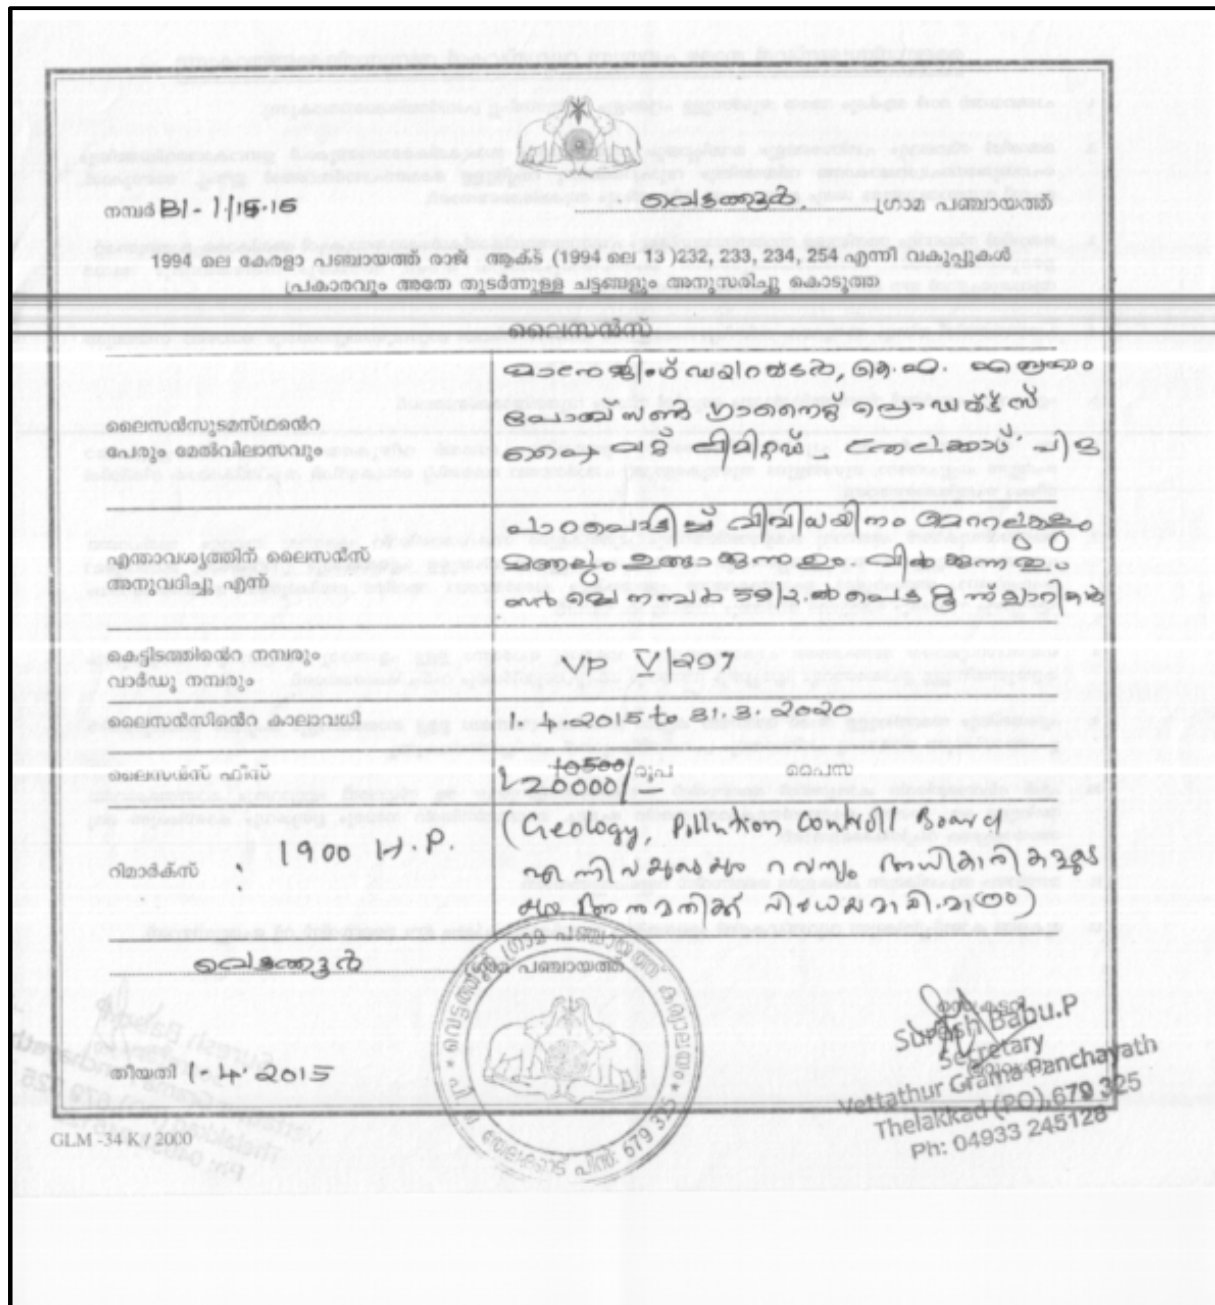 നമ്പർ B1-1/15-16
വെട്ടത്തൂർ ഗ്രാമ പഞ്ചായത്ത്
1994 ലെ കേരളാ പഞ്ചായത്ത് രാജ് ആക്ട് (1994 ലെ 13 )232, 233, 234, 254 എന്നി വകുപ്പുകൾ
പ്രകാരവും അതേ തുടർന്നുള്ള ചട്ടങ്ങളും അനുസരിച്ചു കൊടുത്ത
ലൈസൻസ്
ലൈസൻസുടമസ്ഥന്റെ
പേരും മേൽവിലാസവും
മാനേജിംഗ് ഡയറക്ടർ, കെ.എ.
ഗ്രാനൈറ്റ് പ്രൊഡക്ട്സ്
പ്രൈവറ്റ് ലിമിറ്റഡ്.
എന്താവശ്യത്തിന് ലൈസൻസ്
അനുവദിച്ചു എന്ന്
പാറപൊടിച്ച് വിവിധയിനം മെറ്റലുകളും
മണലും ഉണ്ടാക്കുന്നതും വിൽക്കുന്നതും
നമ്പർ 59/2 ൽ പെട്ട
കെട്ടിടത്തിന്റെ നമ്പരും
വാർഡു നമ്പരും
VP V/207
ലൈസൻസിന്റെ കാലാവധി
1.4.2015 to 31.3.2020
ലൈസൻസ് ഫീസ്
10500/ രൂപ പൈസ
120000/-
റിമാർക്സ് : 1900 H.P.
(Geology, Pollution Controll Board
എന്നിവകളുടെയും റവന്യൂ അധികാരികളുടെ
അനുമതിക്ക് വിധേയമായി മാത്രം)
വെട്ടത്തൂർ ഗ്രാമ പഞ്ചായത്ത്
തീയതി 1-4-2015
വെട്ടത്തൂർ ഗ്രാമ പഞ്ചായത്ത് കാര്യാലയം
പി. ഒ. തേലക്കാട് പിൻ: 679 325
Suresh Babu.P
Secretary
Vettathur Grama Panchayath
Thelakkad (PO),679 325
Ph: 04933 245128
GLM -34 K / 2000